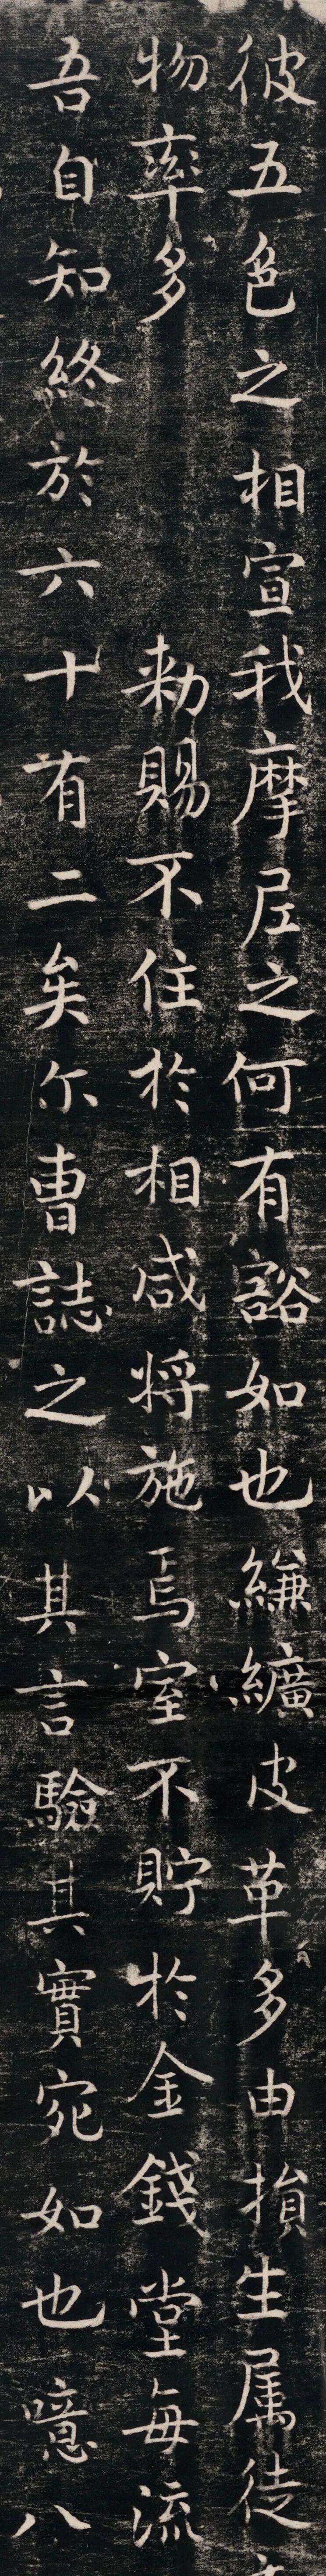 彼五色之相宣我摩尼之何有豁如也縑纊皮革多由損生属徒
物率多 勅賜不住於相咸将施焉室不貯於金錢堂每流
吾自知終於六十有二矣尓曹誌之以其言驗其實宛如也噫八